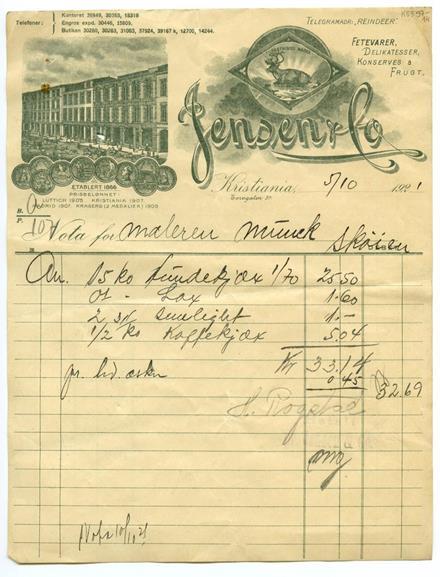 K5597
14
Telefoner:
Kontoret 26949, 30263, 18318
Engros exped. 30446, 15809.
Butiken 30280, 30283, 31063, 37924, 39167 k, 12700, 14244.
TELEGRAMADR: „REINDEER“
FETEVARER,
DELIKATESSER,
KONSERVES &
FRUGT.
Jensen & Co
ETABLERT 1866
PRISBELØNNET:
LÜTTICH 1905. KRISTIANIA 1907.
MADRID 1907. KRAGERØ (2 MEDALJER) 1909
Kristiania, 5/10 1921
Torvgaten
B.
P.
Nota för maleren Munck Skøien
An. 15 ko Hundekjæx 1/70 25.50
Lax 1.60
2 Sunlight 1.—
1/2 ko Kaffekjæx 5.04
Kr 33.14
0.45
32.69
H. Rogstad